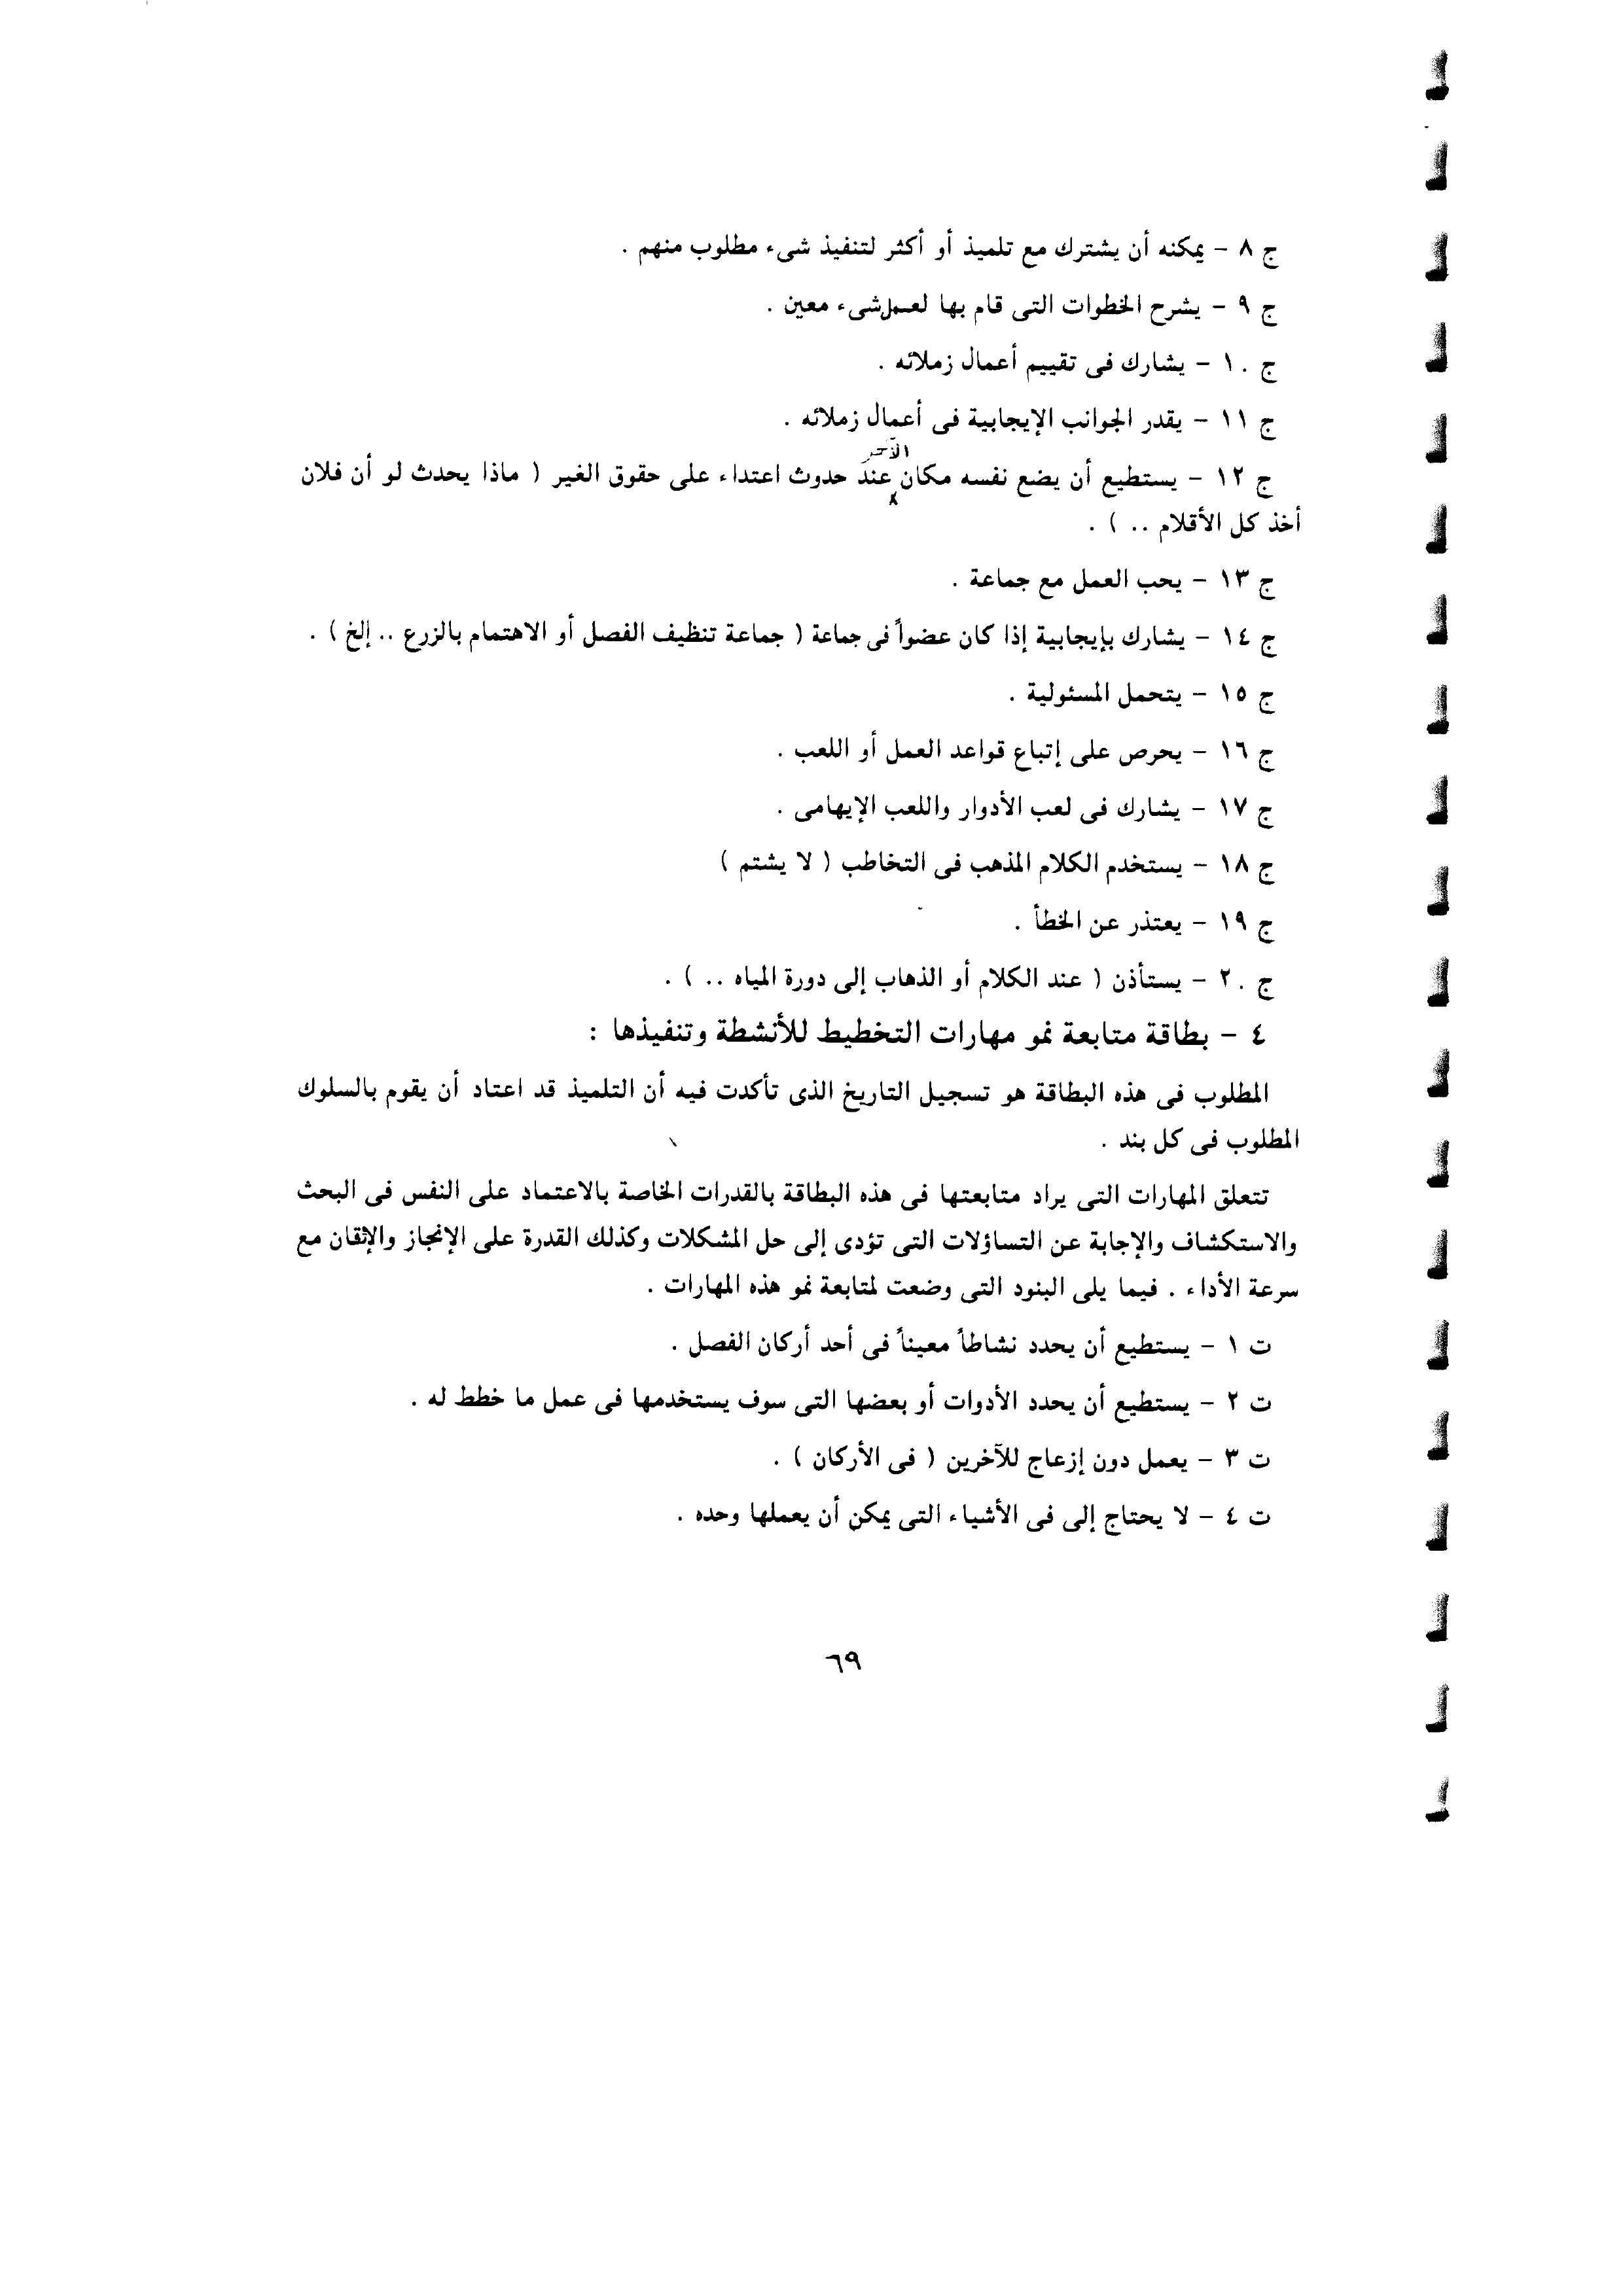 ج ٨ - يمكنه أن يشترك مع تلميذ أو أكثر لتنفيذ شىء مطلوب منهم .
ج ٩ - يشرح الخطوات التى قام بها لعمل شىء معين .
ج ١٠ - يشارك فى تقييم أعمال زملائه .
ج ١١ - يقدر الجوانب الإيجابية فى أعمال زملائه .
الآخر
ج ١٢ - يستطيع أن يضع نفسه مكان عند حدوث اعتداء على حقوق الغير ( ماذا يحدث لو أن فلان
أخذ كل الأقلام .. ) .
ج ١٣ - يحب العمل مع جماعة .
ج ١٤ - يشارك بإيجابية إذا كان عضواً فى جماعة ( جماعة تنظيف الفصل أو الاهتمام بالزرع .. إلخ ) .
ج ١٥ - يتحمل المسئولية .
ج ١٦ - يحرص على إتباع قواعد العمل أو اللعب .
ج ١٧ - يشارك فى لعب الأدوار واللعب الإيهامى .
ج ١٨ - يستخدم الكلام المذهب فى التخاطب ( لا يشتم )
ج ١٩ - يعتذر عن الخطأ .
ج ٢٠ - يستأذن ( عند الكلام أو الذهاب إلى دورة المياه .. ) .
٤ - بطاقة متابعة نمو مهارات التخطيط للأنشطة وتنفيذها :
المطلوب فى هذه البطاقة هو تسجيل التاريخ الذى تأكدت فيه أن التلميذ قد اعتاد أن يقوم بالسلوك
المطلوب فى كل بند .
تتعلق المهارات التى يراد متابعتها فى هذه البطاقة بالقدرات الخاصة بالاعتماد على النفس فى البحث
والاستكشاف والإجابة عن التساؤلات التى تؤدى إلى حل المشكلات وكذلك القدرة على الإنجاز والإتقان مع
سرعة الأداء . فيما يلى البنود التى وضعت لمتابعة نمو هذه المهارات .
ت ١ - يستطيع أن يحدد نشاطاً معيناً فى أحد أركان الفصل .
ت ٢ - يستطيع أن يحدد الأدوات أو بعضها التى سوف يستخدمها فى عمل ما خطط له .
ت ٣ - يعمل دون إزعاج للآخرين ( فى الأركان ) .
ت ٤ - لا يحتاج إلى فى الأشياء التى يمكن أن يعملها وحده .
٦٩